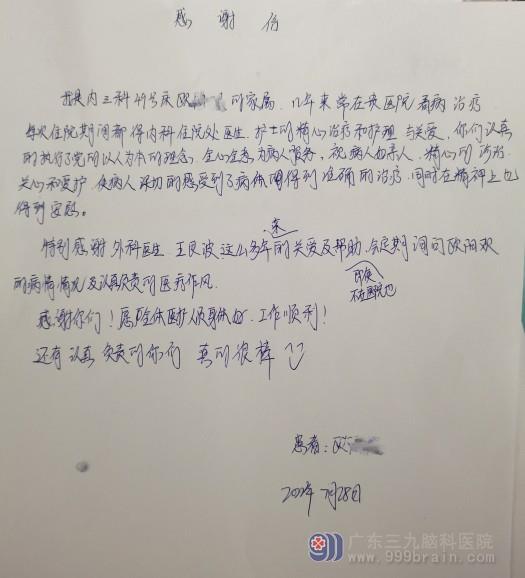 感谢信
我是内三科49号床欧 的家属.几年来常在贵医院看病治疗
每次住院期间都得内科住院处医生.护士的精心治疗和护理与关爱.你们认真
的执行了党的以人为本的理念.全心全意为病人服务,视病人如亲人.精心的诊治.
关心和爱护.使病人深切的感受到了病体 得到准确的治疗.同时在精神上也
得到安慰。
特别感谢外科医生.王良波这么多年来的关爱及帮助.会定期询问欧阳双
即使
不在医院也
的病情情况及认真负责的医疗作风.
感谢你们!愿全体医护人员身体好.工作顺利!
还有认真负责的你们 真的很棒
患者:欧
2022年7月28日
广东三九脑科医院
www.999brain.com